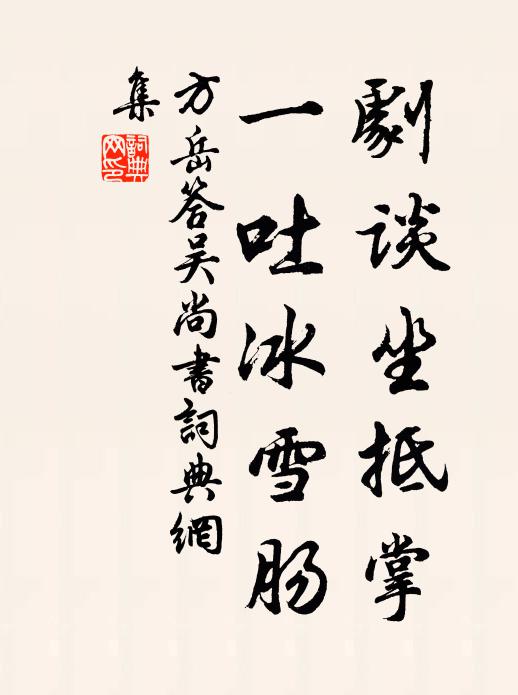 劇谈坐抵掌
一吐冰雪肠
方岳答吴尚書詞典網
集
詞典网印